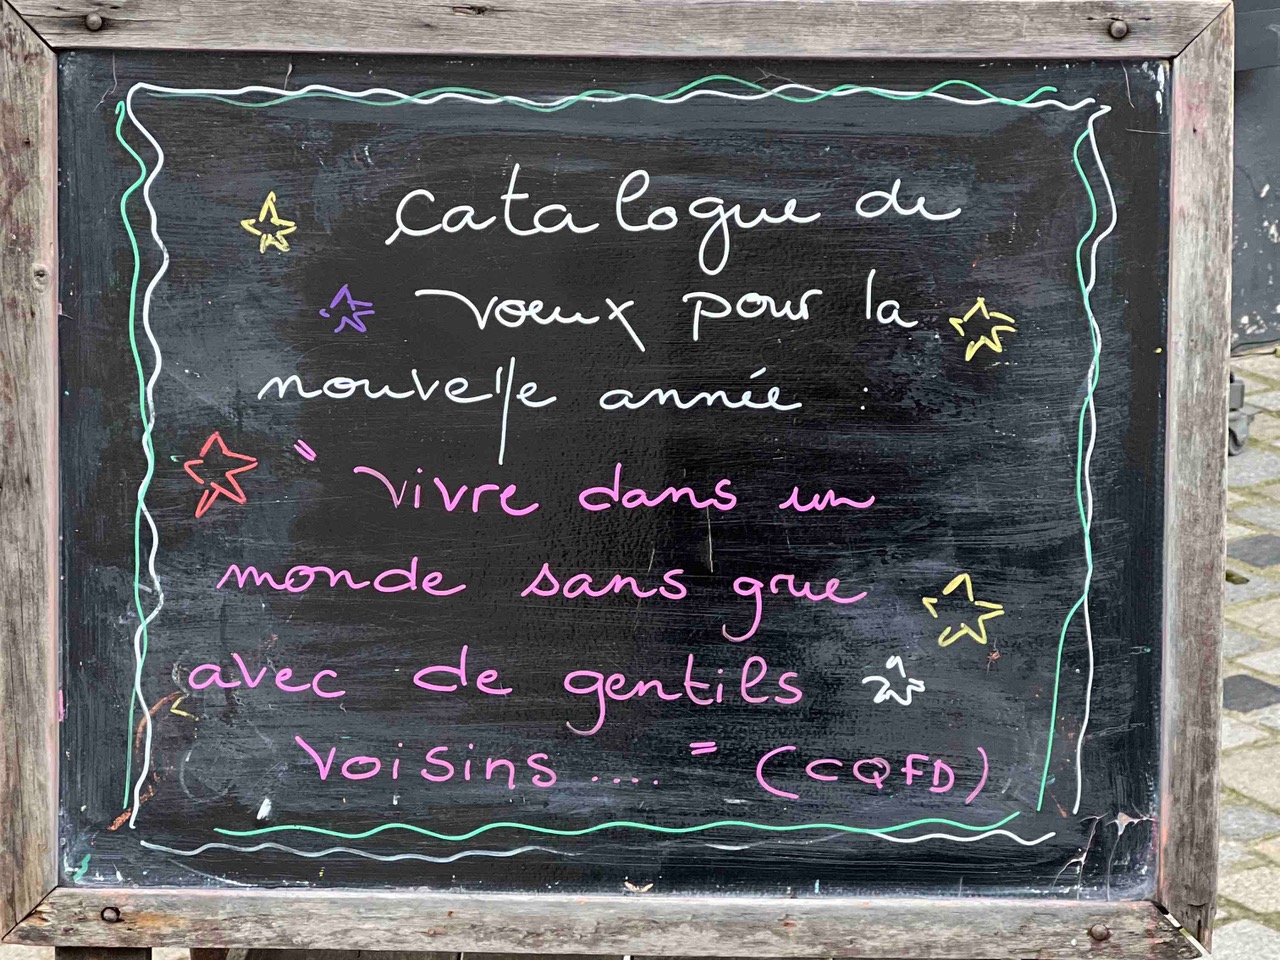 catalogue de
voeux pour la
nouvelle année :
" vivre dans un
monde sans grue
avec de gentils
voisins .... " (CQFD)